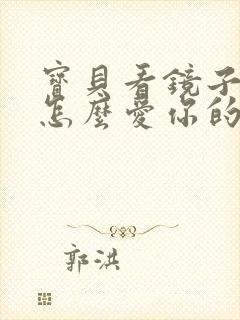 寶貝看鏡子
怎麼愛你的
郭洪